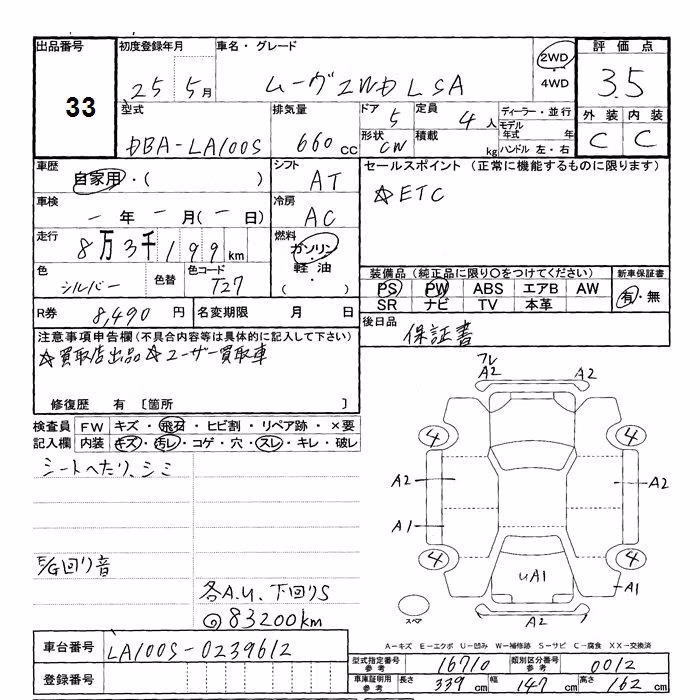 出品番号
33
初度登録年月
25年 5月
車名・グレード
ムーヴ 2WD L SA
2WD
・
4WD
評価点
3.5
外装 内装
C C
型式
DBA-LA100S
排気量
660 cc
ドア 5
形状 CW
定員 4 人
積載 kg
ディーラー・並行
モデル年式 年
ハンドル 左・右
車歴
自家用・( )
シフト
AT
車検
一 年 一 月(一 日)
冷房
AC
走行
8万3千199 km
燃料
ガソリン
・
軽油
( )
色
シルバー
色替
色コード
T27
セールスポイント (正常に機能するものに限ります)
☆ETC
装備品 (純正品に限り○をつけてください)
PS PW ABS エアB AW
SR ナビ TV 本革
新車保証書
有・無
R券 8,490 円
名変期限 月 日
後日品
保証書
注意事項申告欄(不具合内容等は具体的に記入して下さい)
☆買取店出品☆ユーザー買取車
修復歴 有 [箇所 ]
検査員
記入欄
FW キズ・飛石・ヒビ割・リペア跡・×要
内装 キズ・汚レ・コゲ・穴・スレ・キレ・破レ
シートヘタリ、シミ
E/G回り音
各A.U、下回りS
@83200km
フレ
A2 A2
4 4
A2 A2
A1
4 4
UA1 A1
スペア
A2
A-キズ E-エクボ U-凹み W-補修跡 S-サビ C-腐食 XX-交換済
車台番号 LA100S-0239612
登録番号
型式指定番号
参考
16710
類別区分番号
参考
0012
車庫証明用
参考
長さ 339 cm 幅 147 cm 高さ 162 cm